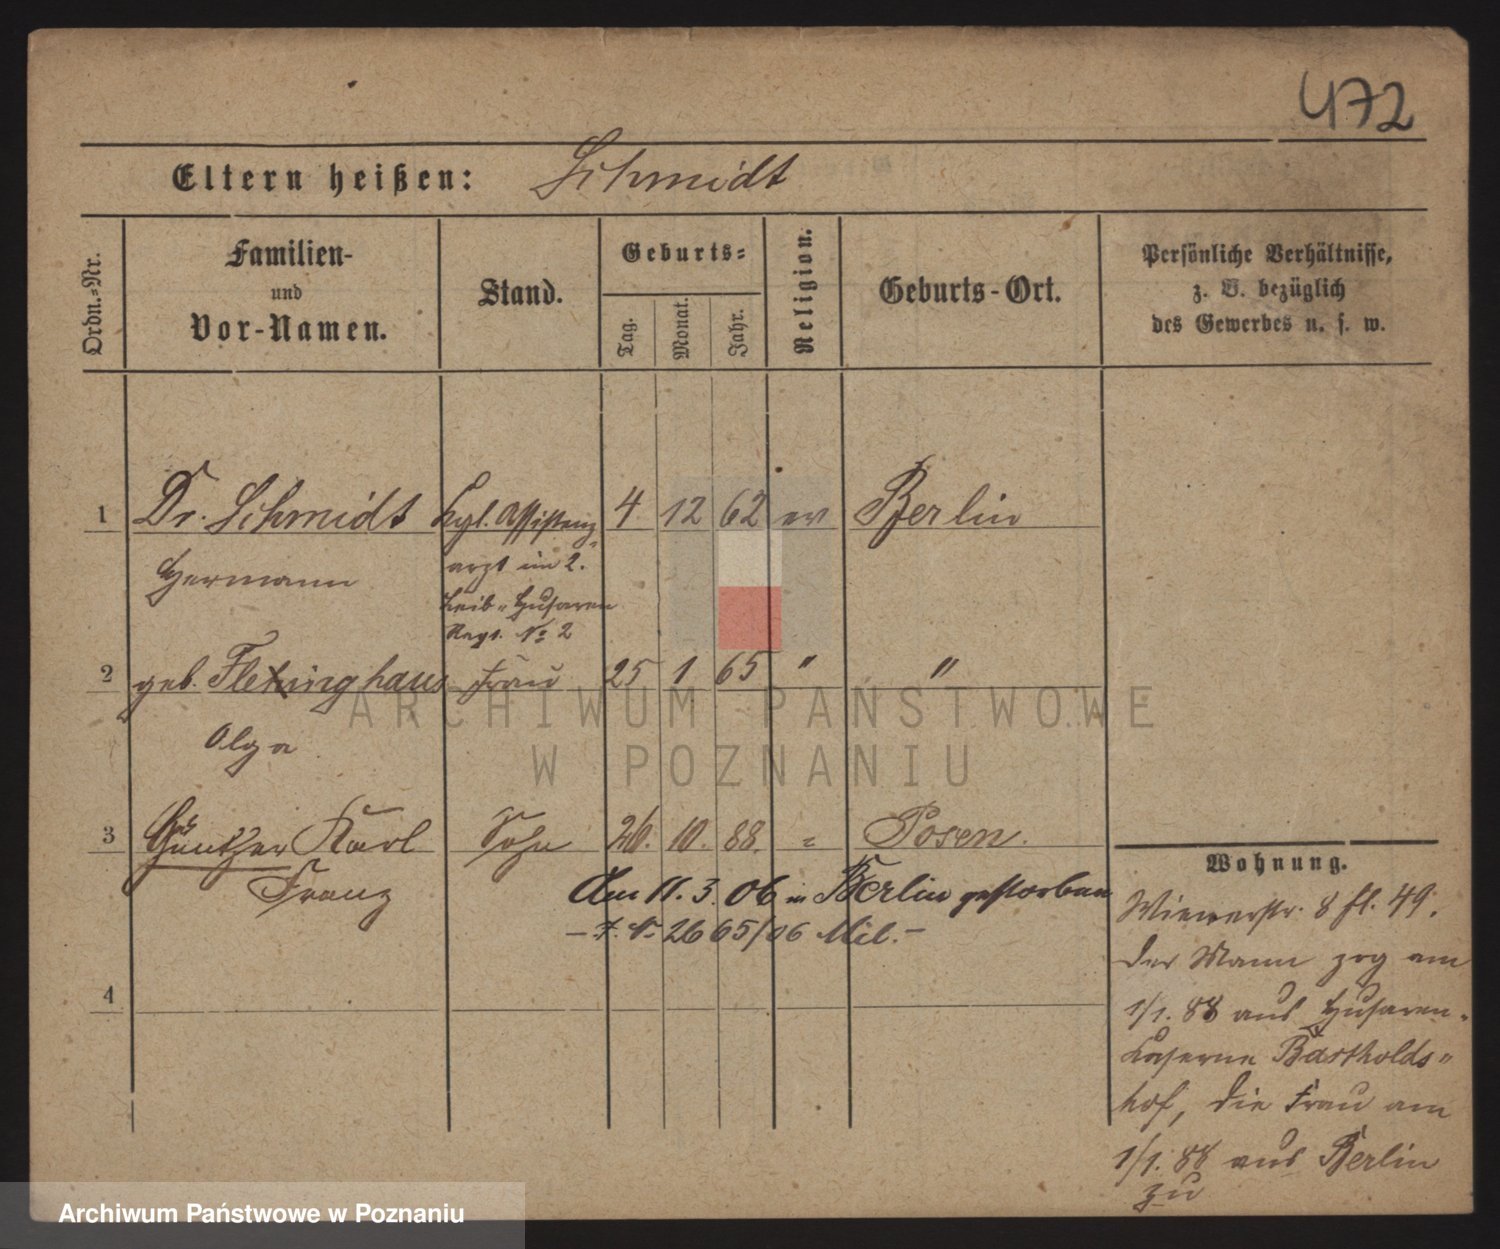 472
Eltern heißen: Schmidt
Ordn.-Nr.
Familien-
und
Vor-Namen.
Stand.
Geburts-
Tag.
Monat.
Jahr.
Religion.
Geburts-Ort.
Persönliche Verhältnisse,
z. B. bezüglich
des Gewerbes u. s. w.
1 Dr. Schmidt Kgl. Assistenz- 4 12 62 ev Berlin
Hermann arzt im 2.
Leib-Husaren
Regt. No 2
2 geb. Frau 25 1 65 " "
Olga
3 Günther Karl Sohn 26. 10. 88. = Posen.
Franz
Am 11. 3. 06 in Berlin gestorben
2665/06 Mil. -
4
Wohnung.
Wienerstr. 8 49.
Der Mann zog am
1/1. 88 aus Husaren-
Kaserne Bartholds-
hof, die Frau am
1/1. 88 aus Berlin
zu
ARCHIWUM PAŃSTWOWE
W POZNANIU
Archiwum Państwowe w Poznaniu